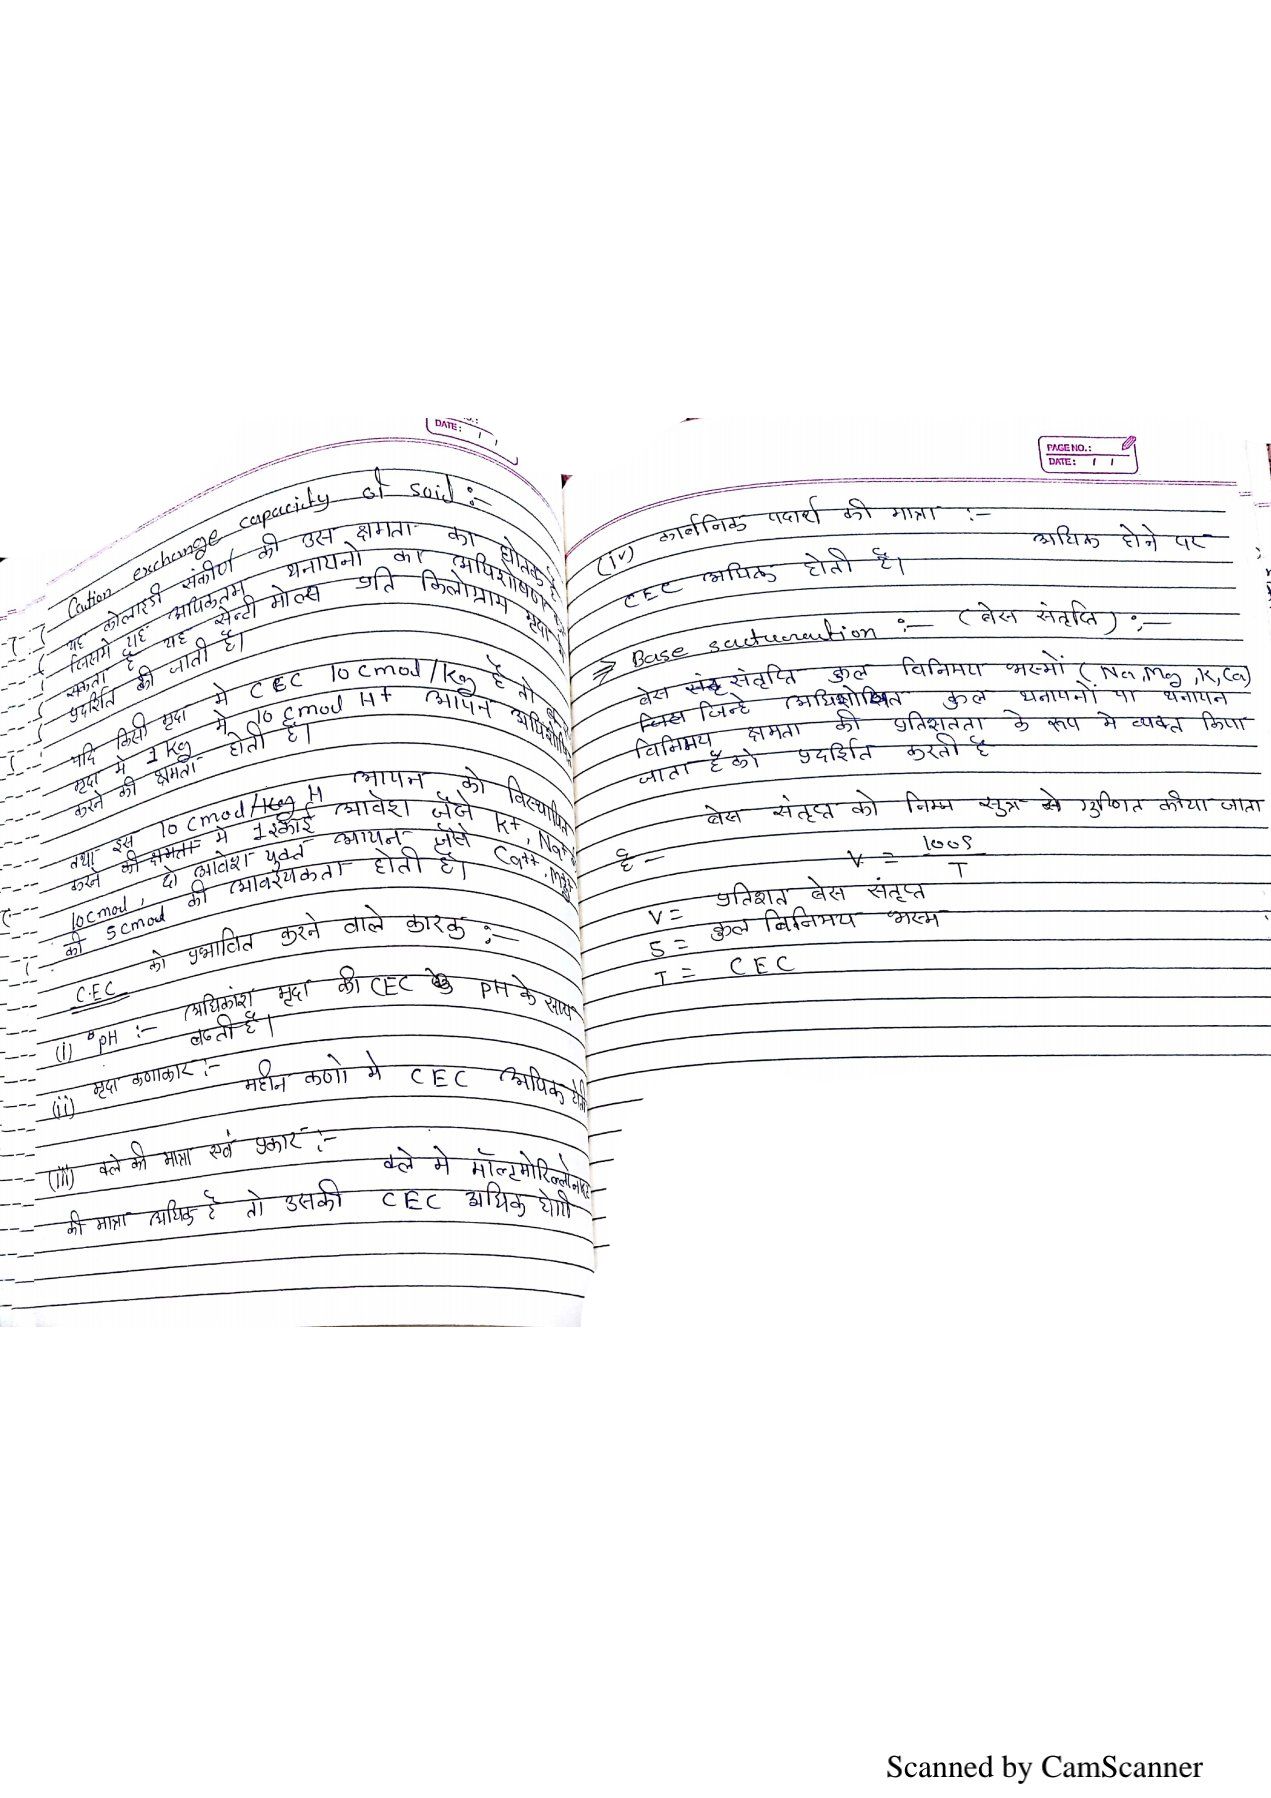 DATE:
Caution exchange capacity of soil :-
यह कोलाइडी संकीर्ण की उस क्षमता का धोतक है
जिसमे यह अधिकतम धनायनो का अधिशोषण
सकता है यह सेन्टी मोल्स प्रति किलोग्राम मृदा
प्रदर्शित की जाती है।
यदि किसी मृदा मे CEC 10 cmod/kg है तो
मृदा मे 1 kg मे 10 cmod H+ आयन अधिशोषित
करने की क्षमता होती है।
तथा इस 10 cmod/kg H आयन को विस्थापित
करने की क्षमता मे 1 इकाई आवेश जैसे K+, Na+
10 cmod, दो आवेश युक्त आयन जैसे Ca++, Mg++
की 5 cmod की आवश्यकता होती है।
C.E.C को प्रभावित करने वाले कारक :-
(i) pH :- अधिकांश मृदा की CEC PH के साथ
बढती है।
(ii) मृदा कणाकार :-
महीन कणो मे CEC अधिक होती
(iii) क्ले की मात्रा एवं प्रकार :-
क्ले मे मॉन्टमोरिल्लोनाइट
की मात्रा अधिक है तो उसकी CEC अधिक होगी
PAGE NO.:
DATE:
(iv) कार्बनिक पदार्थ की मात्रा :-
अधिक होने पर
CEC अधिक होती है।
⇒ Base sacturcution :- (बेस संतृप्ति) :-
बेस संतृप्ति कुल विनिमय भस्मों (Na, Mg, K, Ca)
जिन्हे अधिशोषित कुल धनायनों या धनायन
विनिमय क्षमता की प्रतिशतता के रूप मे व्यक्त किया
जाता है को प्रदर्शित करती है
बेस संतृप्त को निम्न सुत्र से गुणित कीया जाता
है -
V = 100S / T
V = प्रतिशत बेस संतृप्त
S = कुल विनिमय भस्म
T = CEC
Scanned by CamScanner